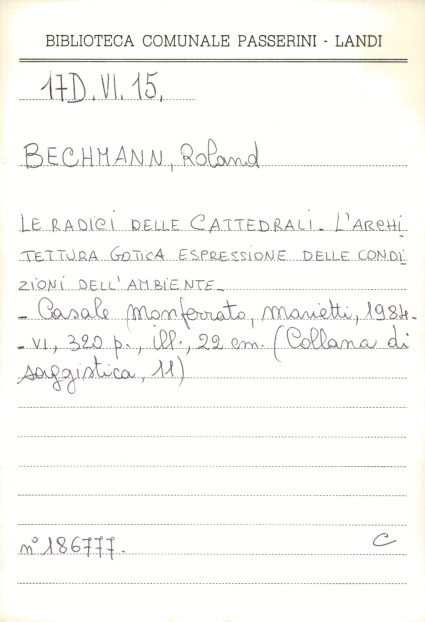 BIBLIOTECA COMUNALE PASSERINI - LANDI
17D.VI.15.
BECHMANN, Roland
LE RADICI DELLE CATTEDRALI. L'ARCHI
TETTURA GOTICA ESPRESSIONE DELLE CONDI
ZIONI DELL'AMBIENTE.
- Casale Monferrato, Marietti, 1984.
- VI, 320 p., ill., 22 cm. (Collana di
saggistica, 11)
n° 186777.
C